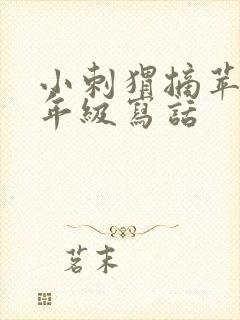 小刺猬摘苹
年級寫話
茗末